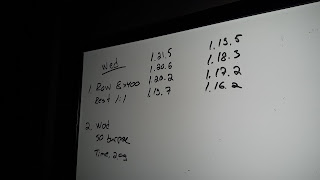 Wed
1. Row 8x400
Rest 1:1
1.21.5
1.20.6
1.20.2
1.19.7
1.19.5
1.18.3
1.17.2
1.16.2
2. Wod
50 burpee
Time